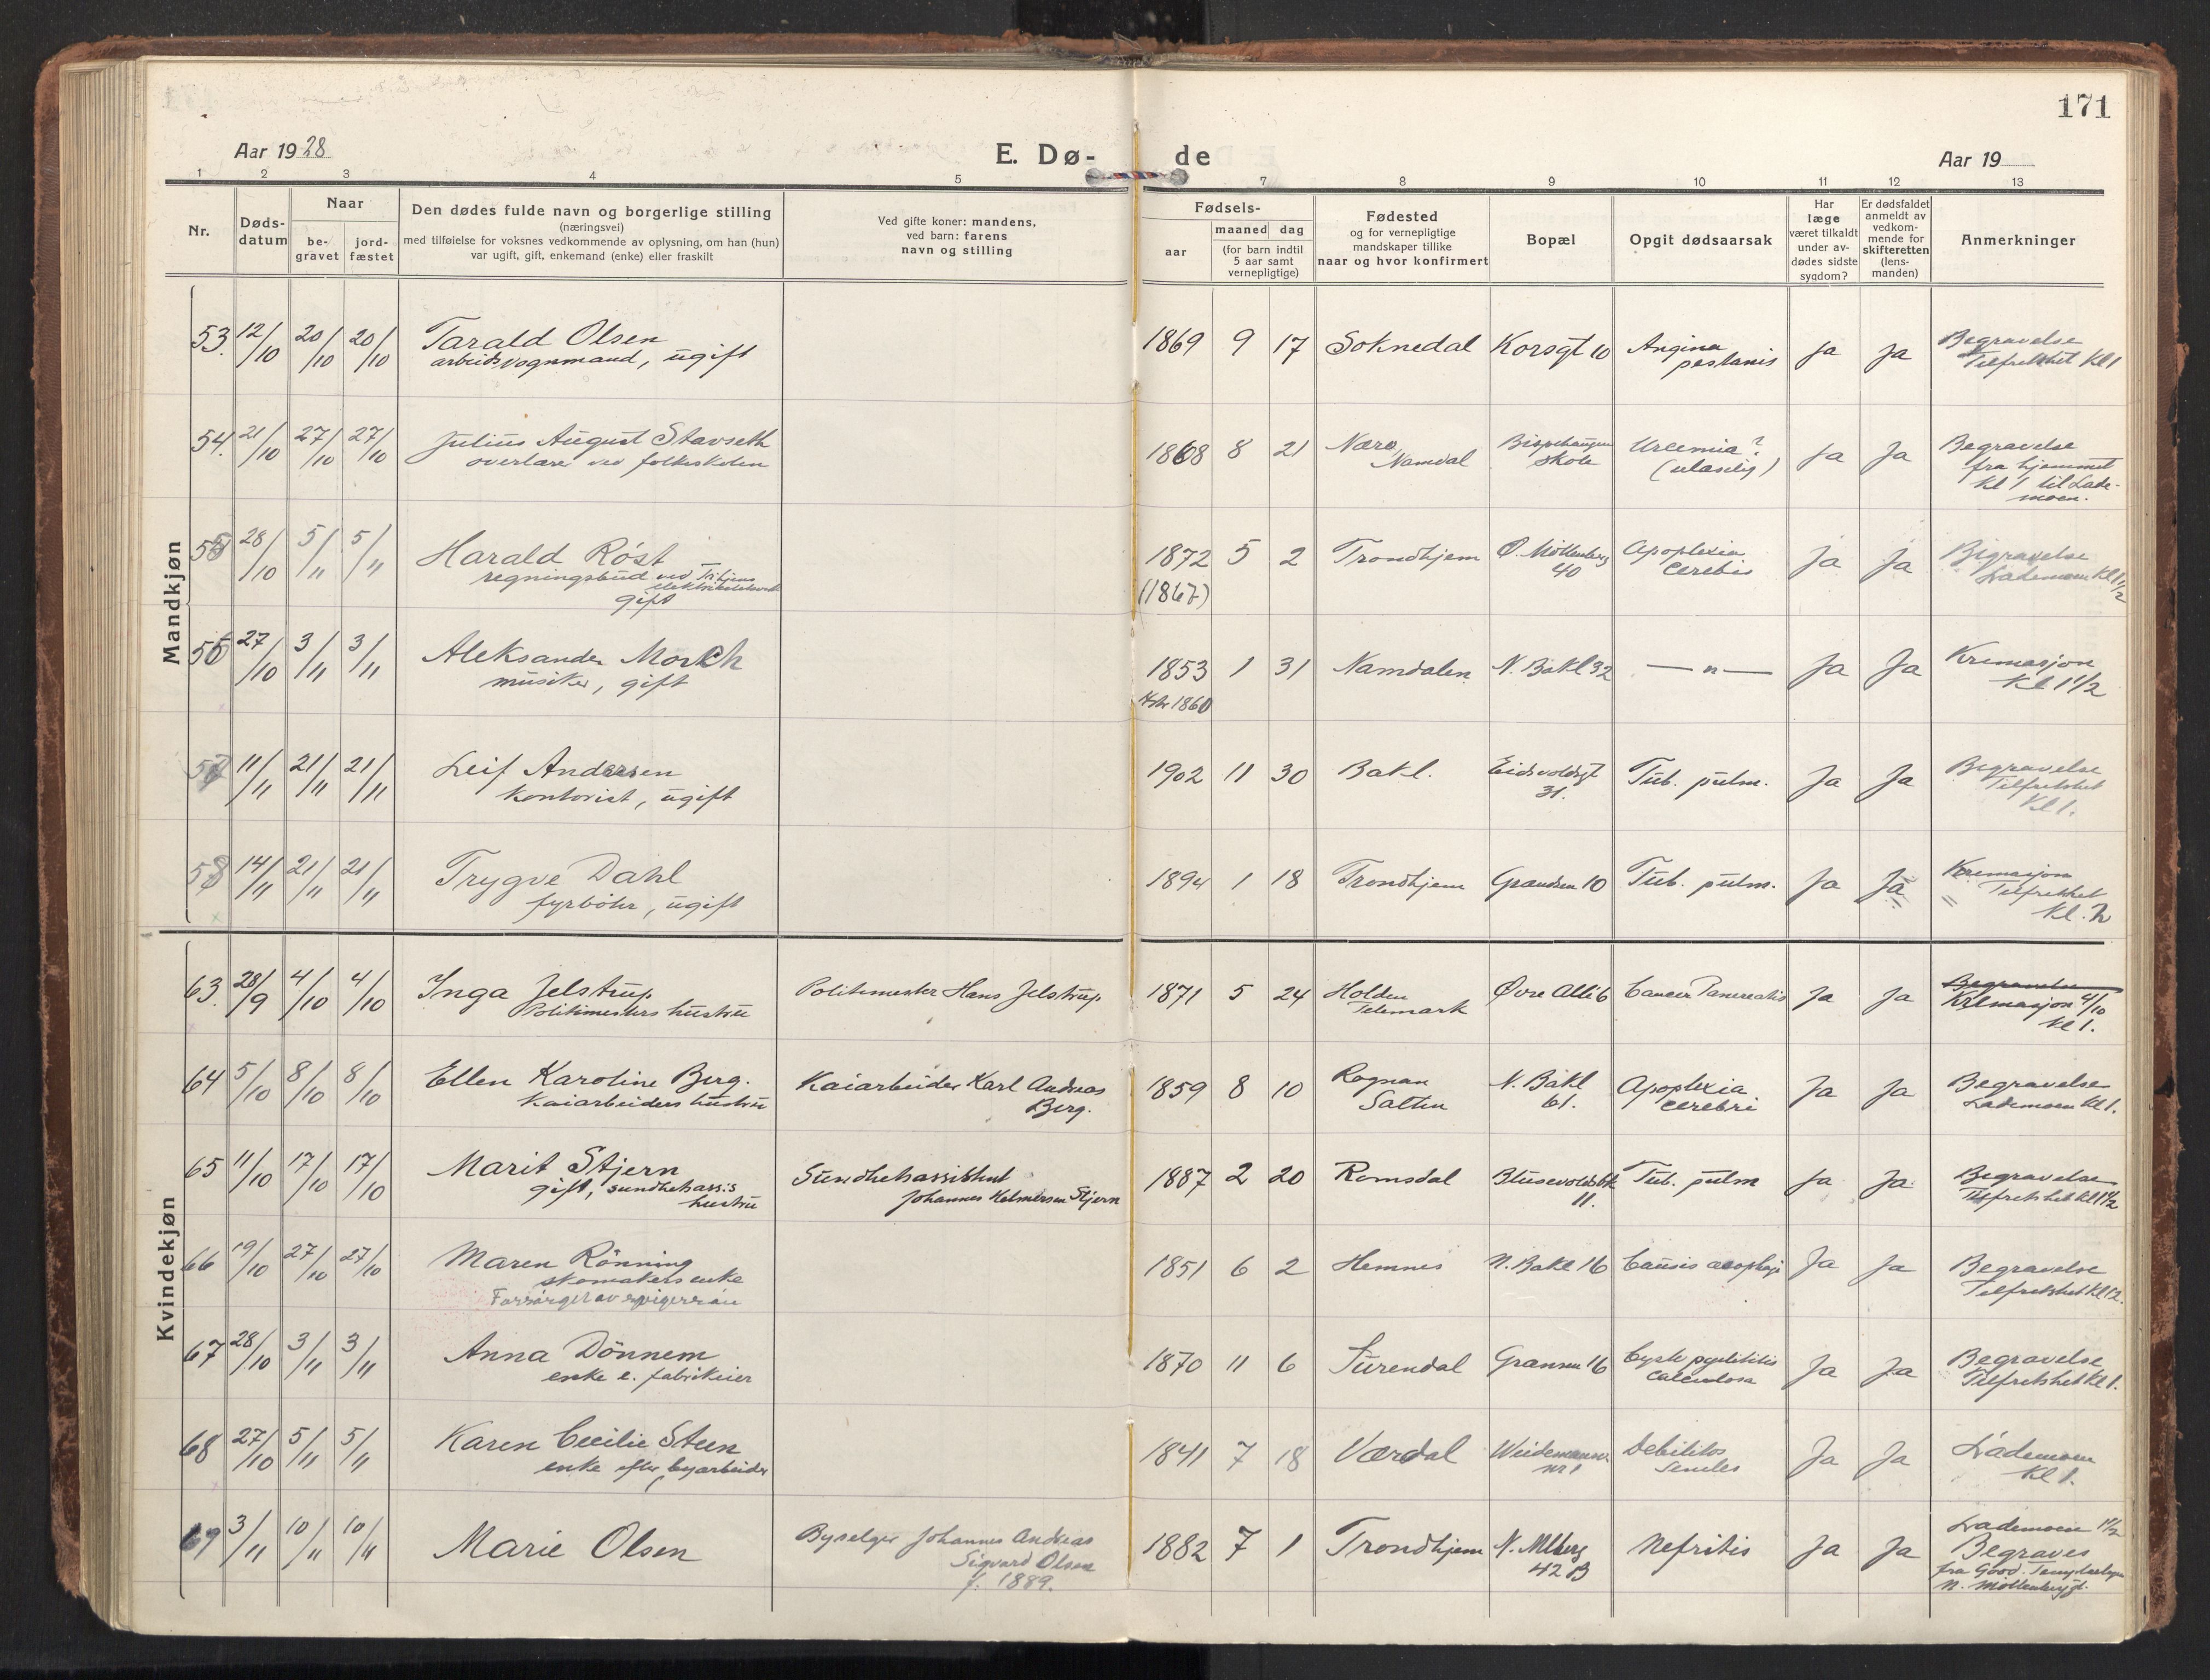 171
Aar 1928
E. Dø-
de
Aar 19
1 2 3 4 5 7 8 9 10 11 12 13
Nr.
Døds-
datum
Naar
be-
gravet
jord-
fæstet
Den dødes fulde navn og borgerlige stilling
(næringsvei)
med tilføielse for voksnes vedkommende av oplysning, om han (hun)
var ugift, gift, enkemand (enke) eller fraskilt
Ved gifte koner: mandens,
ved barn: farens
navn og stilling
Fødsels-
aar
maaned dag
(for barn indtil
5 aar samt
vernepligtige)
Fødested
og for vernepligtige
mandskaper tillike
naar og hvor konfirmert
Bopæl
Opgit dødsaarsak
Har
læge
været tilkaldt
under av-
dødes sidste
sygdom?
Er dødsfaldet
anmeldt av
vedkom-
mende for
skifteretten
(lens-
manden)
Anmerkninger
Mandkjøn
53. 12/10 20/10 20/10 Tarald Olsen 1869 9 17 Soknedal Korsgt 10 Angina Ja Ja Begravelse
arbeidsvognmand, ugift Tilfretshet Kl 1
54. 21/10 27/10 27/10 Julius August Stavseth 1868 8 21 Nærø, Bispehaugen Urcemia? Ja Ja Begravelse
overlærer ved folkeskolen Namdal skole (ulæselig) fra hjemmet
Kl 1 til Lade-
moen.
55 28/10 5/11 5/11 Harald Røst 1872 5 2 Trondhjem Ø. Möllenberg Apoplexia Ja Ja Begravelse
regningsbud ved 40 cerebis Lademoen Kl 1 1/2
gift (1867)
56 27/10 3/11 3/11 Aleksander Morch 1853 1 31 Namdalen N. Bakl 32 — " — Ja Ja Kremasjon
musiker, gift 1860 Kl 1 1/2
57 11/11 21/11 21/11 Leif Andersen 1902 11 30 Bakl. Eidsvoldsgt Tub. pulm. Ja Ja Begravelse
Kontorist, ugift 31. Tilfretshet
Kl 1.
58 14/11 21/11 21/11 Trygve Dahl 1894 1 18 Trondhjem 10 Tub. pulm. Ja Ja Kremasjon
fyrböter, ugift Tilfretshet
Kl. 2
Kvindekjøn
63. 28/9 4/10 4/10 Inga Jelstrup. Politimester Hans Jelstrup. 1871 5 24 Holden Øvre Alle 6 Cancer Pancreatis Ja Ja Begravelse
Politimesters hustru Telemark Kremasjon 4/10
Kl 1.
64 5/10 8/10 8/10 Ellen Karoline Berg. Kaiarbeider Karl Andreas 1859 8 10 Rognan N. Bakl Apoplexia Ja Ja Begravelse
Kaiarbeiders hustru Berg. Salten 61. cerebri Lademoen Kl 1.
65 11/10 17/10 17/10 Marit Stjern Sundhetsassistent 1887 2 20 Romsdal Tub. pulm Ja Ja Begravelse
gift, sundhetsassis Johannes Helmersen Stjern 11. Tilfretshet Kl 1 1/2
hustru
66 19/10 27/10 27/10 Maren Rönning 1851 6 2 Hemnes N. Bakl 16 Ja Ja Begravelse
skomakers enke Tilfretshet Kl 12.
Forsörget av
67 28/10 3/11 3/11 Anna Dönnem 1870 11 6 Surendal 16 Ja Ja Begravelse
enke e. fabrikeier calculosa Tilfretshet Kl 1.
68 27/10 5/11 5/11 Karen Cecilie Steen 1841 7 18 Værdal Debilitos Ja Ja Lademoen
enke efter byarbeider nr 1 seniles Kl 1.
69 3/11 10/11 10/11 Marie Olsen Byselger Johannes Andreas 1882 7 1 Trondhjem N. Mlberg Nefritis Ja Ja Lademoen 1 1/2
Sigvard Olsen 42 B Begraves
f. 1889. fra Good.
N. Möllenberggt.